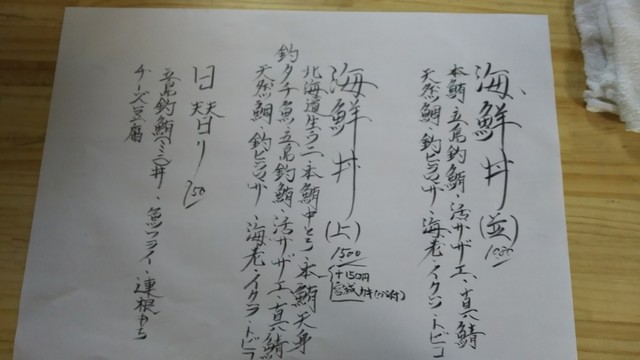 海鮮丼(並)1080
本鮪・五島釣鮪・活サザエ・真鯖
天然鯛・釣ヒラマサ・海老・イクラ・トビコ
海鮮丼(上)1500
+150円
北海道生ウニ・本鮪中とろ・本鮪天身
釣タチ魚・五島釣鮪・活サザエ・真鯖
天然鯛・釣ヒラマサ・海老・イクラ・トビコ
日替り 750
五島釣鮪ミニ丼・魚フライ・連根もち
チーズ豆腐